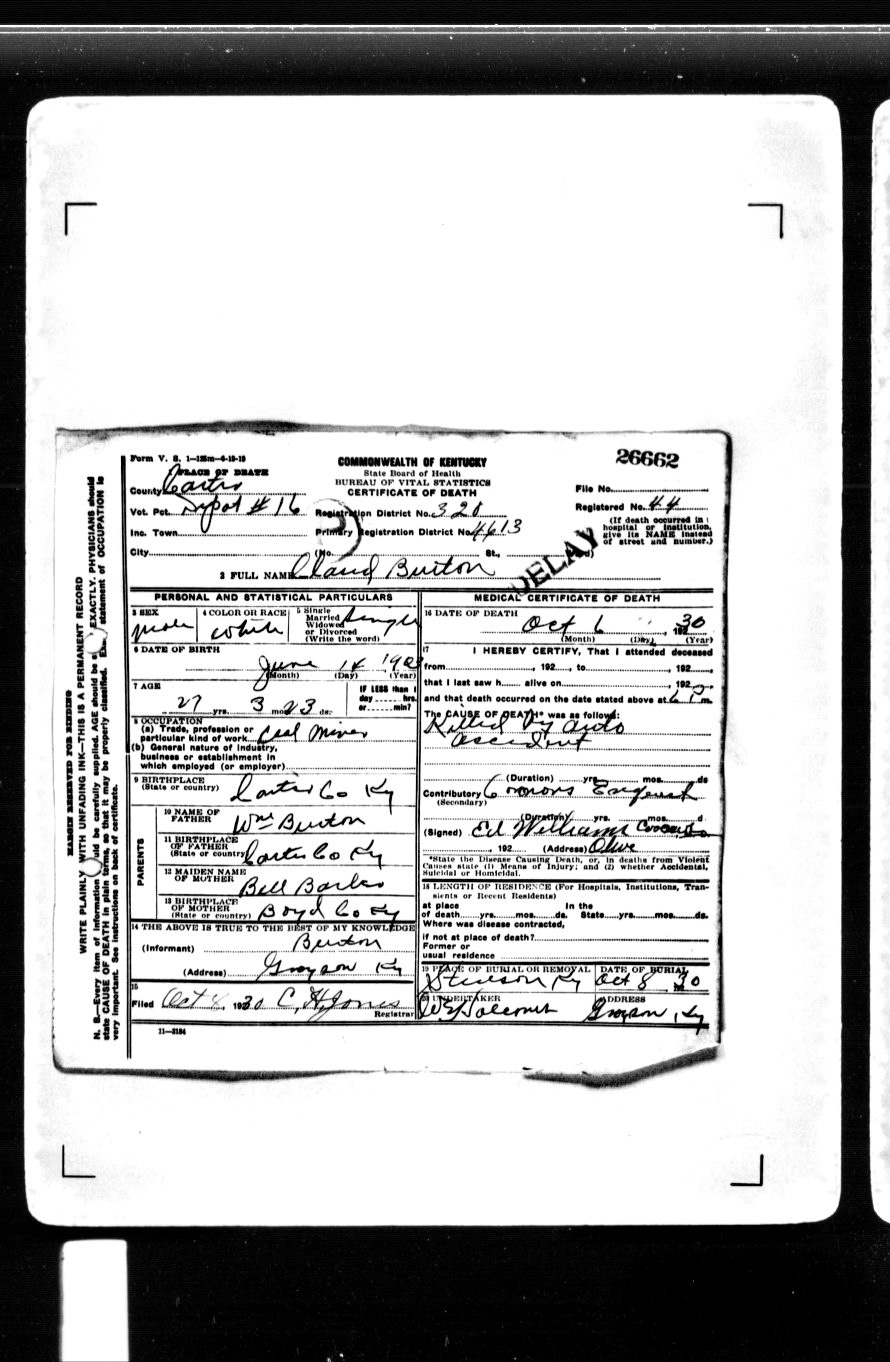 Form V. S. 1—125m—6-19-19
COMMONWEALTH OF KENTUCKY
State Board of Health
BUREAU OF VITAL STATISTICS
CERTIFICATE OF DEATH
26662
1 PLACE OF DEATH
County Carter
File No.
Vot. Pct. Depot # 16
Registration District No. 320
Registered No. 44
Inc. Town
Primary Registration District No. 4613
(If death occurred in
hospital or institution,
give its NAME instead
of street and number.)
City
(No.
St.,
DELAY
2 FULL NAME Claud Burton
PERSONAL AND STATISTICAL PARTICULARS
3 SEX
male
4 COLOR OR RACE
white
5 Single
Married
Widowed
or Divorced
(Write the word)
Single
6 DATE OF BIRTH
June 14 1903
(Month) (Day) (Year)
7 AGE
27 yrs. 3 mos. 23 ds.
IF LESS than 1
day ...... hrs.
or ...... min?
8 OCCUPATION
(a) Trade, profession or
particular kind of work Coal Miner
(b) General nature of industry,
business or establishment in
which employed (or employer)
9 BIRTHPLACE
(State or country) Carter Co Ky
PARENTS
10 NAME OF
FATHER Wm Burton
11 BIRTHPLACE
OF FATHER
(State or country) Carter Co Ky
12 MAIDEN NAME
OF MOTHER Bell Barker
13 BIRTHPLACE
OF MOTHER
(State or country) Boyd Co Ky
14 THE ABOVE IS TRUE TO THE BEST OF MY KNOWLEDGE
(Informant) Burton
(Address) Grayson Ky
15
Filed Oct 8, 1930 C. H. Jones
Registrar
11—3184
MEDICAL CERTIFICATE OF DEATH
16 DATE OF DEATH
Oct 6 30
192
(Month) (Day) (Year)
17 I HEREBY CERTIFY, That I attended deceased
from ......, 192...., to ......, 192....
that I last saw h...... alive on ......, 192....
and that death occurred on the date stated above at 6 P m.
The CAUSE OF DEATH* was as follows:
Killed by auto
accident
(Duration) ...... yrs. ...... mos. ...... ds
Contributory Coronors Enquest
(Secondary)
(Duration) ...... yrs. ...... mos. ...... d
(Signed) Ed Williams
, 192.... (Address) Olive
*State the Disease Causing Death, or, in deaths from Violent
Causes state (1) Means of Injury; and (2) whether Accidental,
Suicidal or Homicidal.
18 LENGTH OF RESIDENCE (For Hospitals, Institutions, Tran-
sients or Recent Residents)
at place In the
of death......yrs.......mos.......ds. State......yrs.......mos.......ds.
Where was disease contracted,
if not at place of death?
Former or
usual residence
19 PLACE OF BURIAL OR REMOVAL
Stinson Ky
DATE OF BURIAL
Oct 8 30
20 UNDERTAKER
Holcomb
ADDRESS
Grayson, Ky
MARGIN RESERVED FOR BINDING
WRITE PLAINLY WITH UNFADING INK—THIS IS A PERMANENT RECORD
N. B.—Every item of information should be carefully supplied. AGE should be s EXACTLY. PHYSICIANS should
state CAUSE OF DEATH in plain terms, so that it may be properly classified. Exa statement of OCCUPATION is
very important. See instructions on back of certificate.